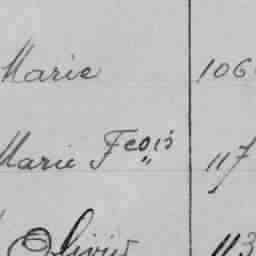 Marie 106
Marie Fcois 117
Olivier 113